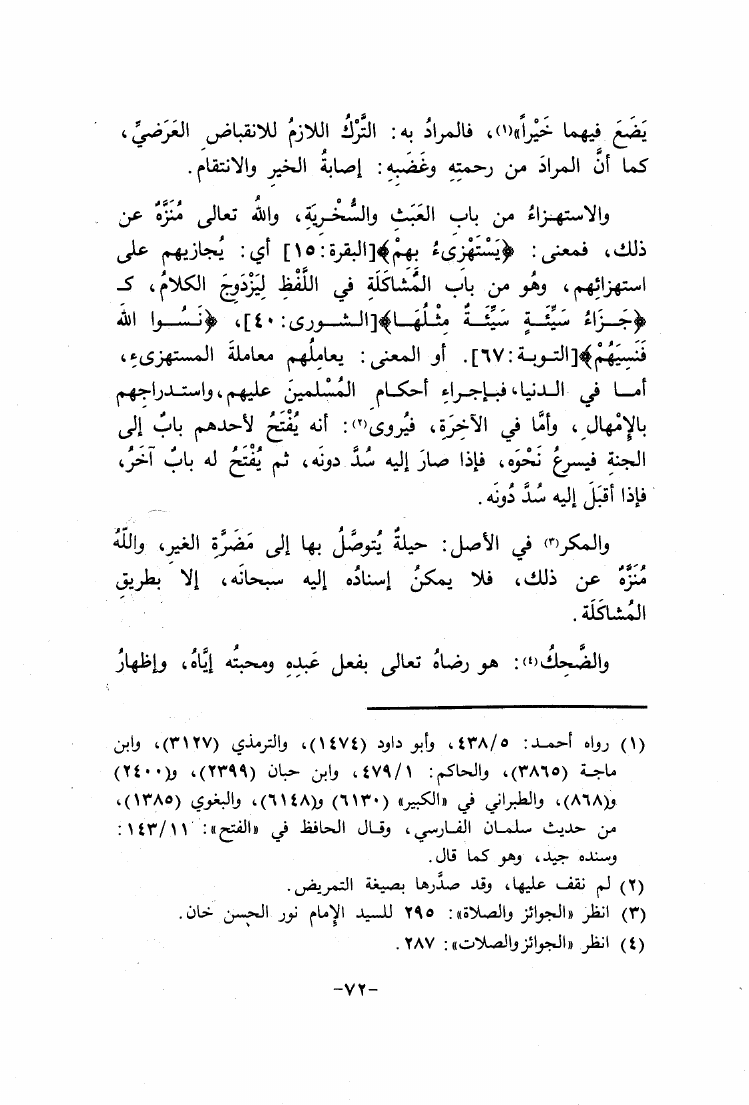 يَضَعَ فيهما خَيْراً»(١)، فالمرادُ به: التَّرْكُ اللازمُ للانقباضِ العَرَضيِّ،
كما أنَّ المرادَ من رحمتِه وغَضَبِه: إصابةُ الخيرِ والانتقام.
والاستهزاءُ من بابِ العَبَثِ والسُّخْرِيَةِ، واللهُ تعالى مُنَزَّهٌ عن
ذلك، فمعنى: ﴿يَسْتَهْزِىءُ بِهِمْ﴾[البقرة:١٥] أي: يُجازيهم على
استهزائِهم، وهُو من بابِ المُشاكَلَةِ في اللَّفْظِ لِيَزْدَوِجَ الكلامُ، كـ
﴿جَـزَاءُ سَيِّئَـةٍ سَيِّئَـةٌ مِثْـلُهَـا﴾[الـشـورى:٤٠]، ﴿نَـسُـوا اللهَ
فَنَسِيَهُمْ﴾[التـوبـة:٦٧]. أو المعنى: يعامِلُهم معاملةَ المستهزىءِ،
أمـا في الـدنيا، فبـإجـراءِ أحكـامِ المُسْلمينَ عليهم، واستـدراجِهم
بالإِمْهالِ، وأمَّا في الآخِرَةِ، فيُروى(٢): أنه يُفْتَحُ لأحدهم بابٌ إلى
الجنةِ فيسرعُ نَحْوَه، فإذا صارَ إليه سُدَّ دونَه، ثم يُفْتَحُ له بابٌ آخَرُ،
فإذا أقبَلَ إليه سُدَّ دُونَه.
والمكر(٣) في الأصل: حيلةٌ يُتوصَّلُ بها إلى مَضَرَّةِ الغيرِ، واللّهُ
مُنَزَّهٌ عن ذلك، فلا يمكنُ إسنادُه إليه سبحانَه، إلا بطريقِ
المُشاكَلَة.
والضَّحِكُ(٤): هو رضاهُ تعالى بفعلِ عَبدِهِ ومحبتُه إيَّاهُ، وإظهارُ
(١) رواه أحمـد: ٤٣٨/٥، وأبو داود (١٤٧٤)، والترمذي (٣١٢٧)، وابن
ماجـة (٣٨٦٥)، والحاكم: ٤٧٩/١، وابن حبان (٢٣٩٩)، و(٢٤٠٠)
و(٨٦٨)، والطبراني في «الكبير» (٦١٣٠) و(٦١٤٨)، والبغوي (١٣٨٥)،
من حديث سلمـان الفـارسي، وقـال الحافظ في «الفتح»: ١٤٣/١١:
وسنده جيد، وهو كما قال.
(٢) لم نقف عليها، وقد صدَّرها بصيغة التمريض.
(٣) انظر «الجوائز والصلاة»: ٢٩٥ للسيد الإمام نور الحسن خان.
(٤) انظر «الجوائز والصلات»: ٢٨٧.
-٧٢-